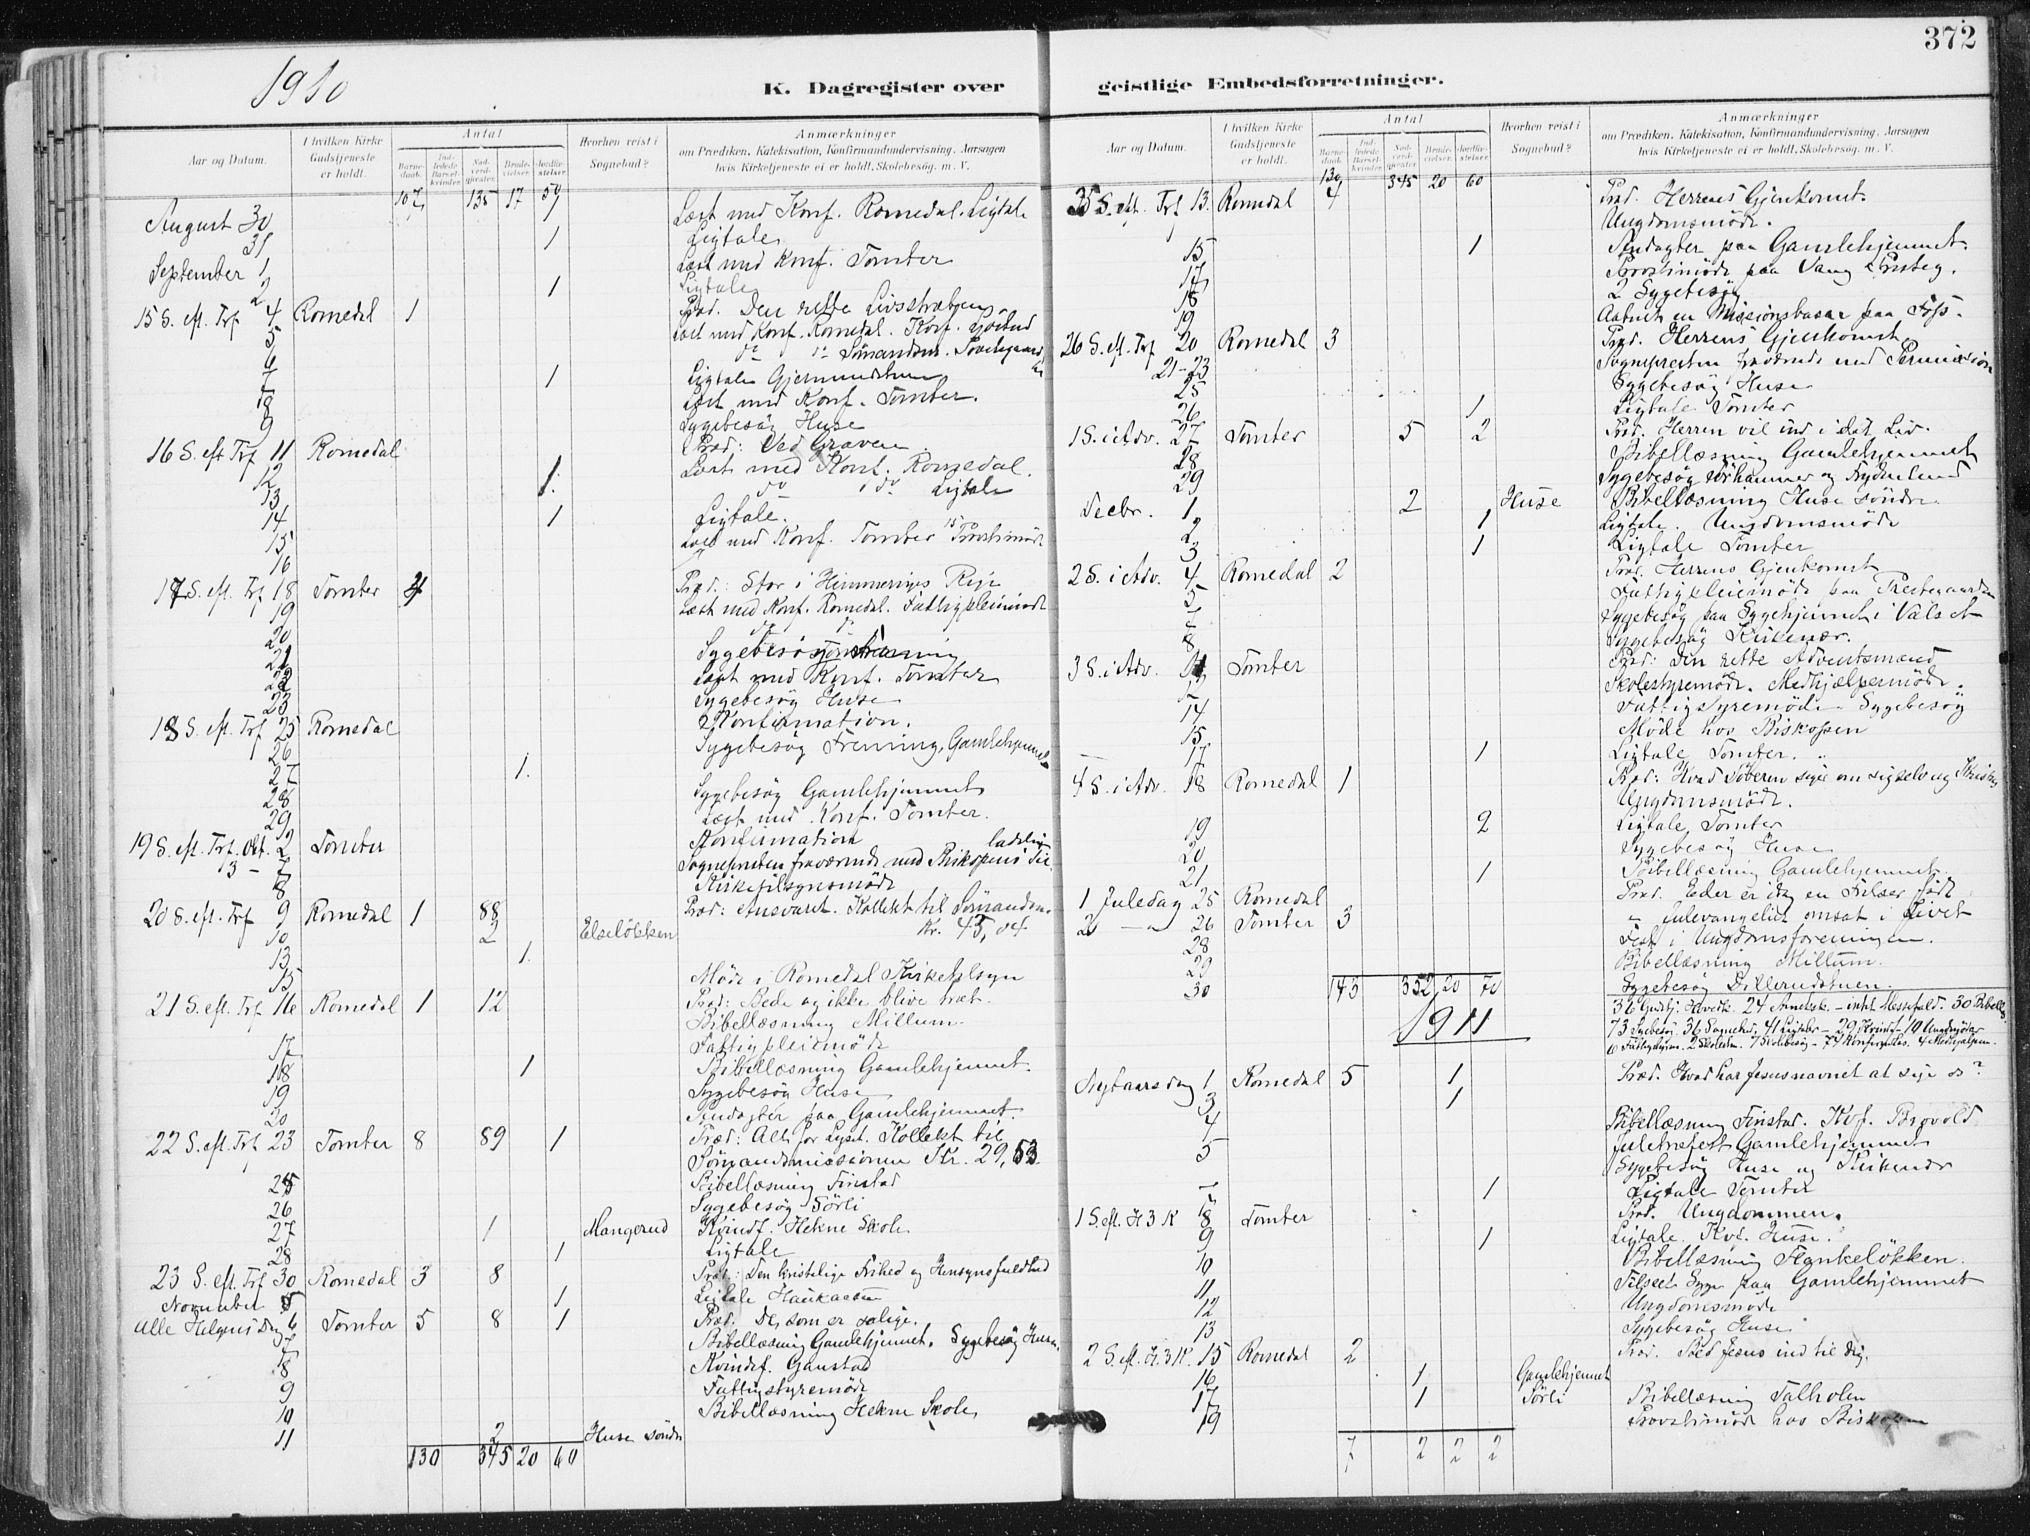 372
1910
K. Dagregister over geistlige Embedsforretninger.
Aar og Datum.
I hvilken Kirke Gudstjeneste er holdt.
Antal
Barnedaab.
Indledede Barselkvinder.
Nadverdgjæster.
Brudevielser.
Jordfæstelser.
Hvorhen reist i Sognebud?
Anmærkninger
om Prædiken, Katekisation, Konfirmandundervisning, Aarsagen
hvis Kirketjeneste ei er holdt, Skolebesøg, m. V.
107 135 17 59
August 30 Læst med Konf. Romedal. Ligtale
31 1 Ligtale
September 1 Læst med Konf. Tomter
2 1 Ligtale
15 S. eft. Trf 4 Romedal 1 Præd. Den rette Livsstræben
5 Læst med Konf. Romedal. Konf.
6
7 1 Ligtale Gjermundstuen
8 Læst med Konf. Tomter.
9 Sygebesøg Huse
16 S. eft Trf 11 Romedal Præd: Ved Graven
12 Læst med Konf. Romedal.
13 1 do do Ligtale
14 1 Ligtale.
15 Læst med Konf. Tomter 15 Provstimöde
16
17 S. eft. Trf 18 Tomter 4 Præd: Stor i Himmeriges Rige
19 Læst med Konf. Romedal. Fattigpleiemöde
20
21 Sygebesøg
22 Læst med Konf. Tomter
23 Sygebesøg Huse
18 S. eft. Trf 25 Romedal Konfirmation.
26 Sygebesøg Frenning, Gamlehjemmet
27 1
28 Sygebesøg Gamlehjemmet
29 Læst med Konf. Tomter.
19 S. eft. Trf. Okt. 2 Tomter Konfirmation
3 - 7 Sognepresten fraværende med Biskopens Tilladelse
8 Kirketilsynsmöde
20 S. eft. Trf 9 Romedal 1 88 Præd: Ansvaret. Kollekt til Sömandsm.
10 2 Elselökken Kr. 45,04
13 1
15 Möde i Romedal Kirketilsyn
21 S. eft. Trf 16 Romedal 1 12 Præd: Bede og ikke blive træt.
Bibellæsning Millum.
17 Fattigpleiemöde
18 1 Bibellæsning Gamlehjemmet.
19 Sygebesøg Huse
20 Andagter paa Gamlehjemmet.
22 S. eft. Trf 23 Tomter 8 89 1 Præd: Alt for Lyset. Kollekt til
Sömandsmissionen Kr. 29,53.
25 Bibellæsning Finstad
26 Sygebesøg Sörli
27 1 Mangerud Kvindf. Hekne Skole
28 1 Ligtale
23 S. eft. Trf 30 Romedal 3 8 Præd: Den kristelige Frihed og Hensynsfuldhed
November 5 1 Ligtale Haukaasen
Alle Helgens Dag 6 Tomter 5 8 1 Præd. De, som er salige.
7 Bibellæsning Gamlehjemmet. Sygebesøg Huse
8 Kvindef. Gaustad
9 Fattigstyremöde
10 Bibellæsning Hekne Skole
11 2 Huse söndre
130 345 20 60
Aar og Datum.
I hvilken Kirke Gudstjeneste er holdt.
Antal
Barnedaab.
Indledede Barselkvinder.
Nadverdgjæster.
Brudevielser.
Jordfæstelser.
Hvorhen reist i Sognebud?
Anmærkninger
om Prædiken, Katekisation, Konfirmandundervisning, Aarsagen
hvis Kirketjeneste ei er holdt, Skolebesøg, m. V.
130 345 20 60
25 S. eft. Trf 13. Romedal 4 Præd. Herrens Gjenkomst.
Ungdomsmöde.
15 1 Andagter paa Gamlehjemmet.
17 Provstimöde paa Vang Presteg.
18 2 Sygebesøg
19 Aabnet en Missionsbasar paa
26 S. eft. Trf 20 Romedal 3 Præd. Herrens Gjenkomst
21-23 Sognepresten fraværende med Permission
25 Sygebesøg Huse
26 1 Ligtale Tomter
1 S. i Adv. 27 Tomter 5 2 Præd. Herren vil ind i dit Liv.
28 Bibellæsning Gamlehjemmet
29 Sygebesøg
Decbr. 1 2 Huse Bibellæsning Huse söndre
2 1 Ligtale. Ungdomsmöde
3 1 Ligtale Tomter
2 S. i Adv. 4 Romedal 2 Præd. Herrens Gjenkomst
5 Fattigpleiemöde paa Prestegaarden
Sygebesøg paa Sygehjemmet i Valset
8 Sygebesøg Kirkenær.
3 S. i Adv. 11 Tomter Præd: Den rette Adventsmand
12 Skolestyremöde. Medhjælpermöde.
Fattigstyremöde Sygebesøg
14 Möde hos Biskopen
15
17 1 Ligtale Tomter.
4 S. i Adv. 18 Romedal 1 Præd: Hvad Döberen siger om sig selv og Kristus
Ungdomsmöde.
19 2 Ligtale Tomter
20 Sygebesøg Huse
21 1 Bibellæsning Gamlehjemmet
1 Juledag 25 Romedal Præd. Eder er idag en Frelser födt
2 — 26 Tomter 3 " Julevangeliet omsat i Livet
28 Fest i Ungdomsforeningen.
29 Bibellæsning Millum.
30 Sygebesøg Dillerudstuen
143 352 20 70
1911
Nytaarsdag 1 Romedal 5 1 Præd. Hvad har Jesusnavnet at sige os?
3 1
4 Bibellæsning Finstad. Kvf. Brovold
5 Juletræfest Gamlehjemmet
Sygebesøg Huse og Kirkenær
7 1 Ligtale Tomter
1 S. eft. H 3 K 8 Tomter Præd. Ungdommen.
9 1 Ligtale. Kvf. Huse.
10 Bibellæsning Flankelökken.
11 Tilseet Syge paa Gamlehjemmet
12 Ungdomsmöde
13 Sygebesøg Huse
2 S. eft. H. 3 K. 15 Romedal 2 Præd. Bed Jesus ind til dig.
16 1 Gamlehjemmet
17 1 Sörli Bibellæsning Talholen
19 Provstimöde hos Biskopen
7 2 2 2